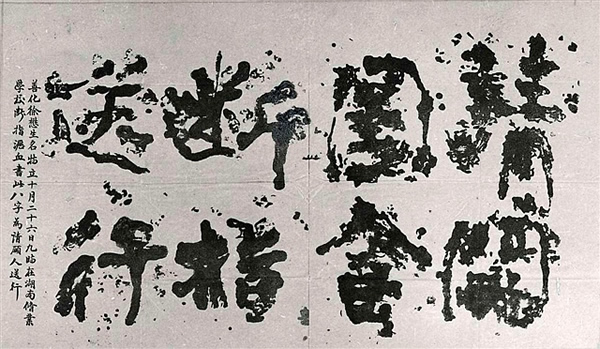 請開
國會
斷指
送行
善化徐懋生名特立十月二十六日九點在湖南脩業
學校斷指瀝血書此八字為請願人送行